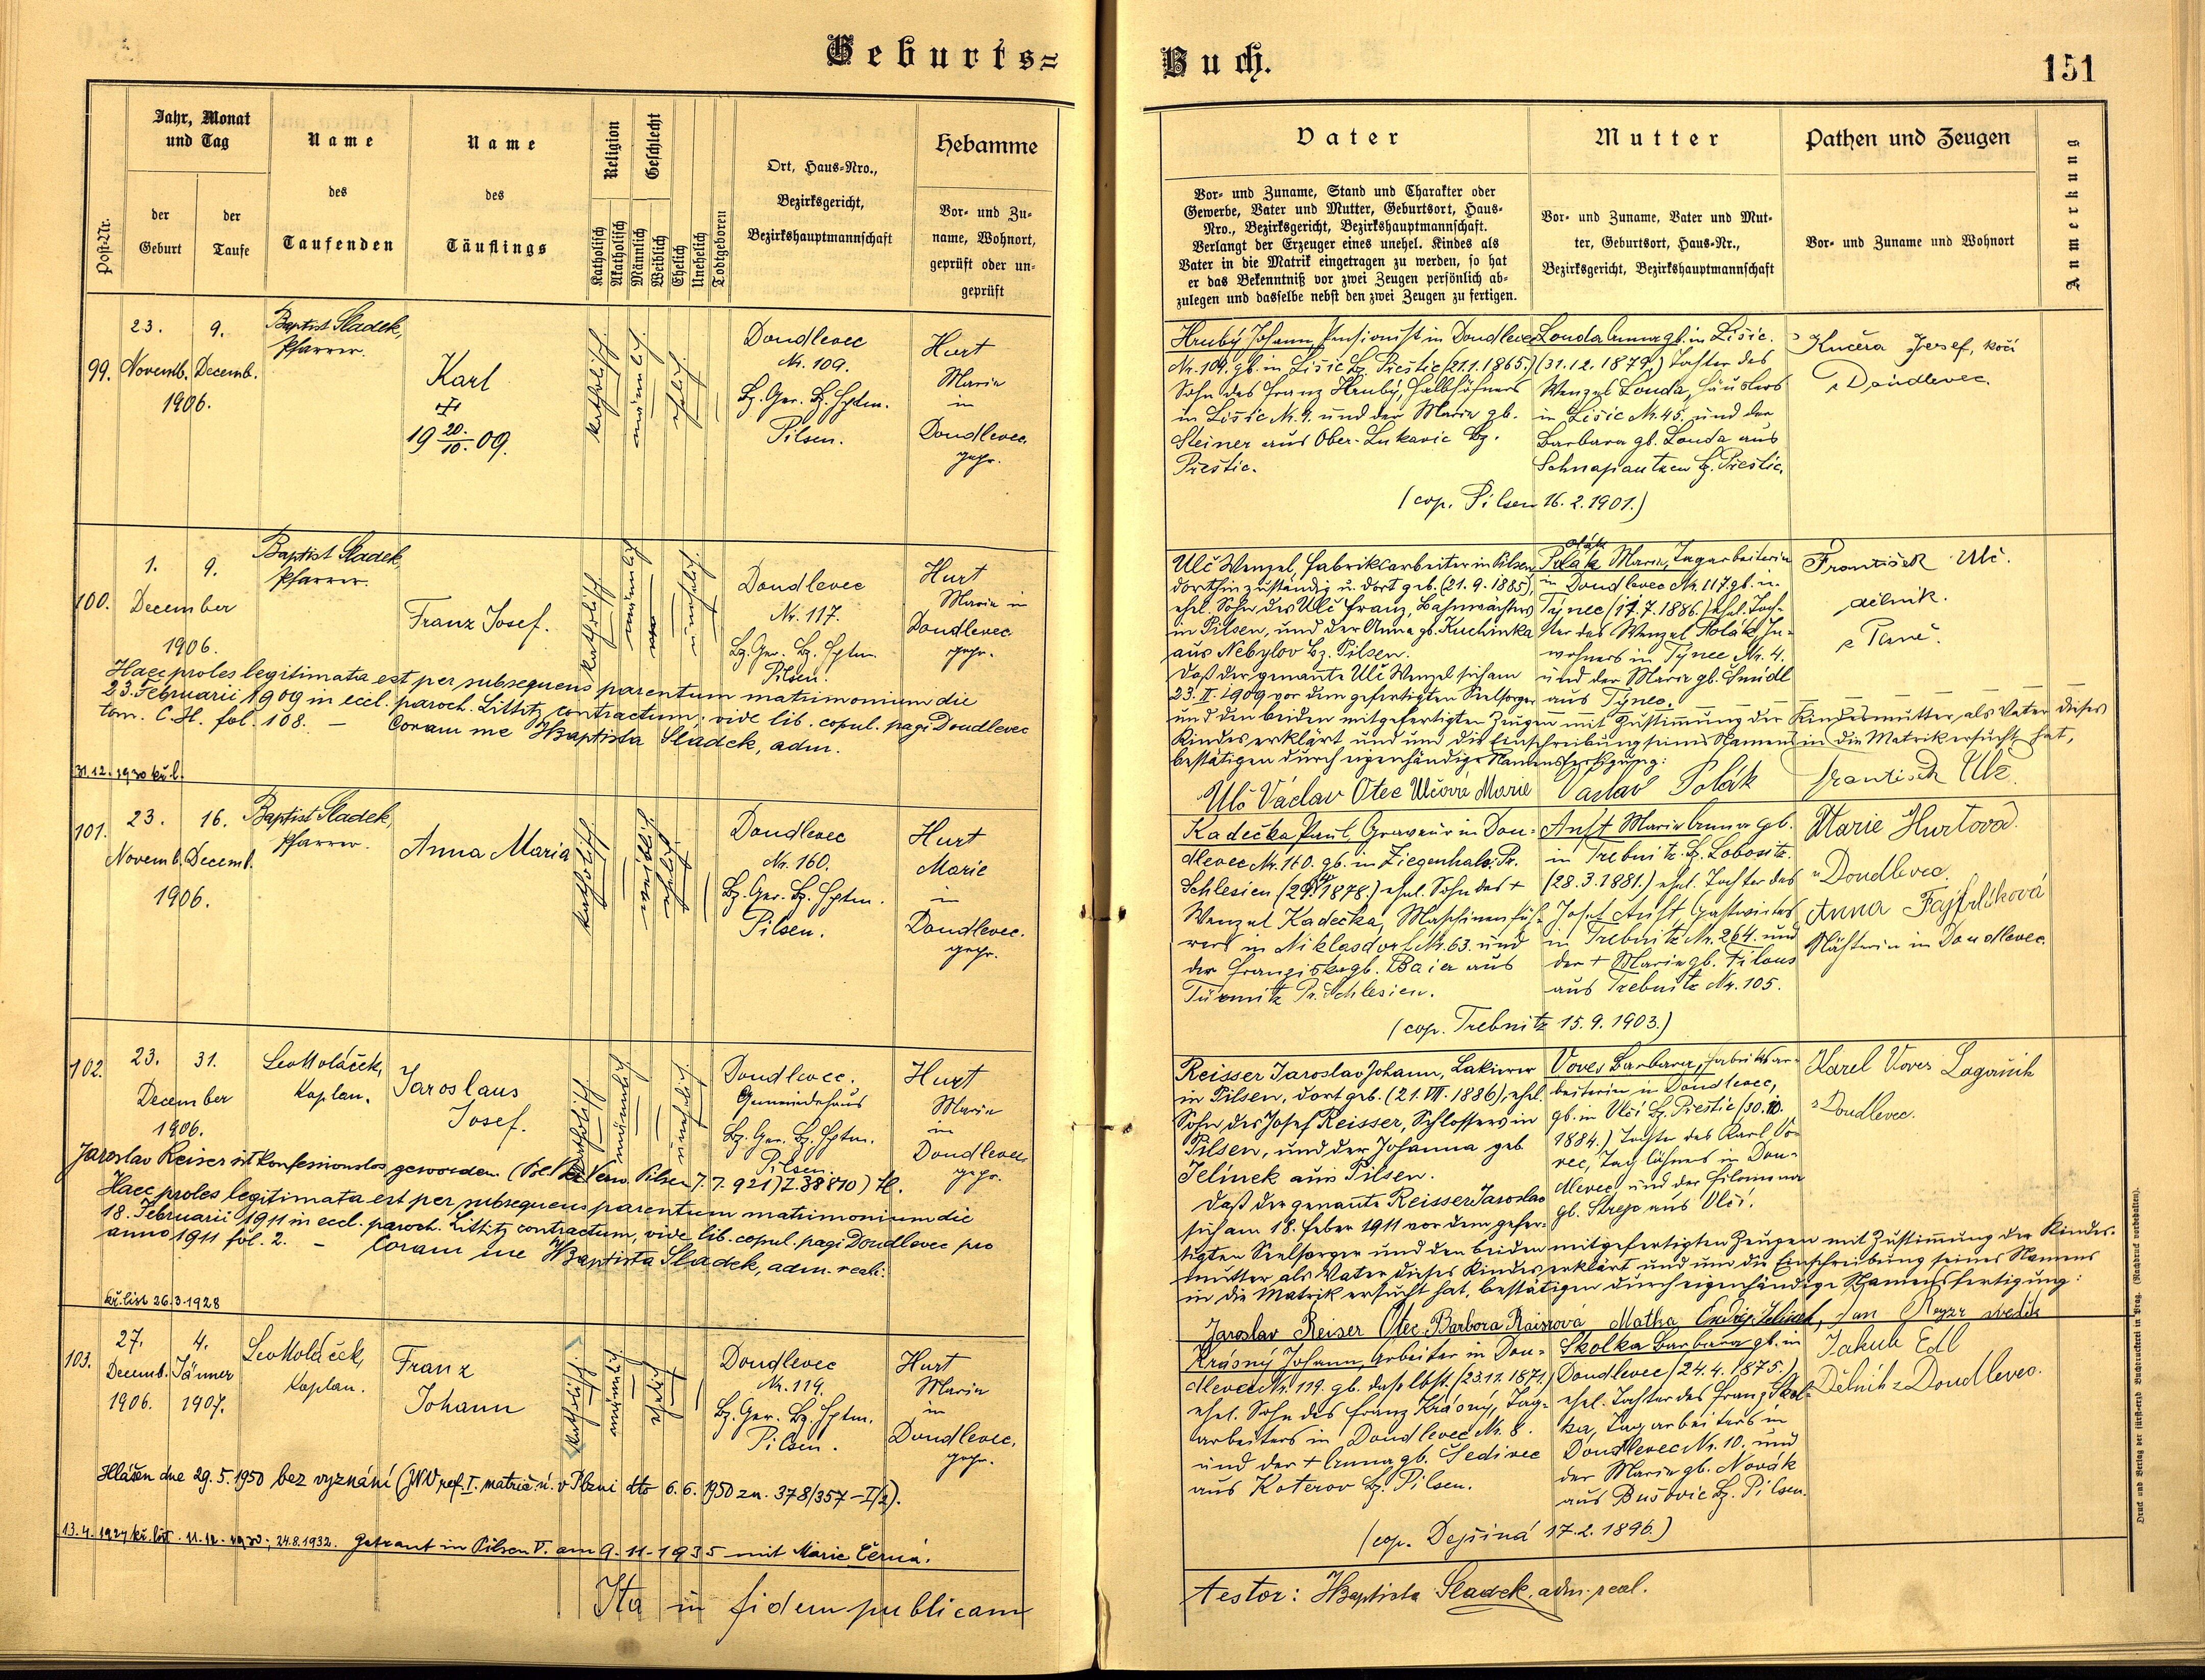 Geburts=
Jahr, Monat
und Tag
Name
Name
Religion
Geschlecht
Hebamme
Post-Nr.
der
Geburt
der
Taufe
des
Taufenden
des
Täuflings
Katholisch
Akatholisch
Männlich
Weiblich
Ehelich
Unehelich
Todtgeboren
Ort, Haus-Nro.,
Bezirksgericht,
Bezirkshauptmannschaft
Vor- und Zu-
name, Wohnort,
geprüft oder un-
geprüft
99.
23.
Novemb.
9.
Decemb.
1906.
Baptist Sladek,
Pfarrer.
Karl
19 20./10. 09.
katholisch
männlich
ehelich
Doudlevec
Nr. 109.
Bz. Ger. Bz. Hptm.
Pilsen.
Hurt
Maria
in
Doudlevec
gepr.
100.
1.
9.
December
1906.
Baptist Sladek,
Pfarrer.
Franz Josef.
katholisch
männlich
unehelich
Doudlevec
Nr. 117.
Bz. Ger. Bz. Hptm.
Pilsen.
Hurt
Maria in
Doudlevec
gepr.
Haec proles legitimata est per subsequens parentum matrimonium die
23. Februarii 1909 in eccl. paroch. Littitz contractum, vide lib. copul. pagi Doudlevec
tom. C.H. fol. 108. — Coram me JBaptista Sladek, adm.
31.12.1930 kř. l.
101.
23.
Novemb.
16.
Decemb.
1906.
Baptist Sladek,
Pfarrer.
Anna Maria
katholisch
weiblich
ehelich
Doudlevec
Nr. 160.
Bz. Ger. Bz. Hptm.
Pilsen.
Hurt
Marie
in
Doudlevec.
gepr.
102.
23.
31.
December
1906.
Leo Koláček,
Kaplan.
Jaroslaus
Josef.
katholisch
männlich
unehelich
Doudlevec.
Gemeindehaus
Bz. Ger. Bz. Hptm.
Pilsen.
Hurt
Maria
in
Doudlevec
gepr.
Jaroslav Reiser ist konfessionslos geworden (Pol. Bz. Verw. Pilsen 7.7.921) Z. 38870)
Haec proles legitimata est per subsequens parentum matrimonium die
18. Februarii 1911 in eccl. paroch. Littitz contractum, vide lib. copul. pagi Doudlevec pro
anno 1911 fol. 2. — Coram me JBaptista Sladek, adm. real.
kř. list 26.3.1928
103.
27.
Decemb.
1906.
4.
Jänner
1907.
Leo Koláček,
Kaplan.
Franz
Johann
katholisch
männlich
ehelich
Doudlevec
Nr. 119.
Bz. Ger. Bz. Hptm.
Pilsen.
Hurt
Maria
in
Doudlevec.
gepr.
Hlášen dne 29.5.1950 bez vyznání (JNV ref. I. matrič. ú. v Plzni dto 6.6.1950 zn. 378/357-I/2).
13.4.1927 kř. list. 11.12.1930; 24.8.1932. Getraut in Pilsen V. am 9.11.1935 mit Marie Černá.
Ita in fidem publicam
Buch.
151
Vater
Mutter
Pathen und Zeugen
Anmerkung
Vor- und Zuname, Stand und Charakter oder
Gewerbe, Vater und Mutter, Geburtsort, Haus-
Nro., Bezirksgericht, Bezirkshauptmannschaft.
Verlangt der Erzeuger eines unehel. Kindes als
Vater in die Matrik eingetragen zu werden, so hat
er das Bekenntniß vor zwei Zeugen persönlich ab-
zulegen und dasselbe nebst den zwei Zeugen zu fertigen.
Vor- und Zuname, Vater und Mut-
ter, Geburtsort, Haus-Nr.,
Bezirksgericht, Bezirkshauptmannschaft
Vor- und Zuname und Wohnort
Hrubý Johann, Pensionist in Doudlevec
Nr. 109. gb. in Lišic Bz. Přestic (21.1.1865.)
Sohn des Franz Hrubý, Halbhöfners
in Lišic Nr. 9. und der Maria gb.
Steiner aus Ober-Lukavic Bz.
Přestic.
Louda Anna gb. in Lišic.
(31.12.1879.) Tochter des
Wenzel Louda, Häuslers
in Lišic Nr. 45. und der
Barbara gb. Louda aus
Schnapautzen Bz. Přestic.
(cop. Pilsen 16.2.1901.)
Kučera Josef, kočí
z Doudlevec.
Ulč Wenzel, Fabriksarbeiter in Pilsen
dorthin zuständig u. dort geb. (21.9.1885),
ehel. Sohn des Ulč Franz, Bahnwächters
in Pilsen, und der Anna gb. Kuchinka
aus Nebylov Bz. Pilsen.
Daß der genannte Ulč Wenzel sich am
23. II. 1909 vor dem gefertigten Seelsorger
Polák Maria, Tagarbeiterin
in Doudlevec Nr. 117. gb. in
Týnec (17.7.1886.) ehel. Toch-
ter des Wenzel Polák, In-
wohners in Týnec Nr. 4.
und der Maria gb. Šmídl
aus Týnec.
und den beiden mitgefertigten Zeugen mit Zustimmung der Kindesmutter, als Vater dieses
Kindes erklärt und um die Einschreibung seines Namens in die Matrik ersucht hat,
bestätigen durch eigenhändige Namensfertigung:
Ulč Václav Otec Ulčová Marie Václav Polák František Ulč.
František Ulč.
dělník.
z Plzně.
Kadečka Paul, Graveur in Dou-
dlevec Nr. 160. gb. in Ziegenhals Pr.
Schlesien 1878.) ehel. Sohn des +
Wenzel Kadečka, Maschinenfüh-
rers in Niklasdorf Nr. 63. und
der Franziska gb. Baier aus
Türmitz Pr. Schlesien.
Anft Maria Anna gb.
in Trebnitz. Bz. Lobositz.
(28.3.1881.) ehel. Tochter des
Josef Anft, Gastwirtes
in Trebnitz Nr. 264. und
der + Maria gb. Filous
aus Trebnitz Nr. 105.
(cop. Trebnitz 15.9.1903.)
Marie Hurtová
Doudlevec.
Anna Fajfrlíková
Näherin in Doudlevec.
Reisser Jaroslav Johann, Lakierer
in Pilsen, dort geb. (21. VII. 1886), ehel.
Sohn des Josef Reisser, Schlossers in
Pilsen, und der Johanna geb
Jelinek aus Pilsen.
Daß der genannte Reisser Jaroslav
sich am 18. Feber 1911 vor dem gefer-
Voves Barbara, Fabriksar-
beiterin in Doudlevec,
gb. in Vlčí Bz. Přestic (30.10.
1884.) Tochter des Karl Vo-
ves, Taglöhners in Dou-
dlevec und der Filomena
gb. Strejc aus Vlčí.
tigten Seelsorger und den beiden mitgefertigten Zeugen mit Zustimmung der Kindes-
mutter als Vater dieses Kindes erklärt und um die Einschreibung seines Namens
in die Matrik ersucht hat, bestätigen durch eigenhändige Namensfertigung:
Jaroslav Reiser Otec Barbora Raisrová Matka Ondřej Jelínek, Jan
Karel Voves
z Doudlevec.
Krásný Johann, Arbeiter in Dou-
dlevec Nr. 119. gb. daselbst. (23.11.1871)
ehel. Sohn des Franz Krásný, Tag-
arbeiters in Doudlevec Nr. 8.
und der + Anna gb. Šedivec
aus Koterov Bz. Pilsen.
Skolka Barbara gb. in
Doudlevec (24.4.1875.)
ehel. Tochter des Franz Skol-
ka, Tagarbeiters in
Doudlevec Nr. 10. und
der Maria gb. Novák
aus Bušovic Bz. Pilsen.
(cop. Dejšiná 17.2.1896.)
Jakub Edl
Dělník z Doudlevec.
testor: JBaptista Sladek, adm. real.
Druck und Verlag der fürst-erzb. Buchdruckerei in Prag. (Nachdruck vorbehalten).